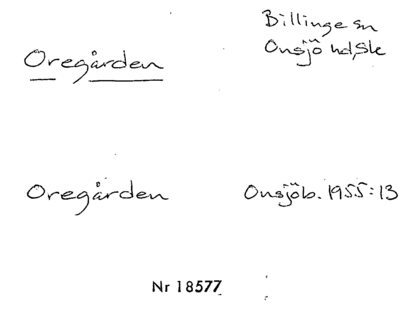 Billinge sn
Onsjö hd, Sk
Oregården
Oregården Onsjöb. 1955:13
Nr 18577